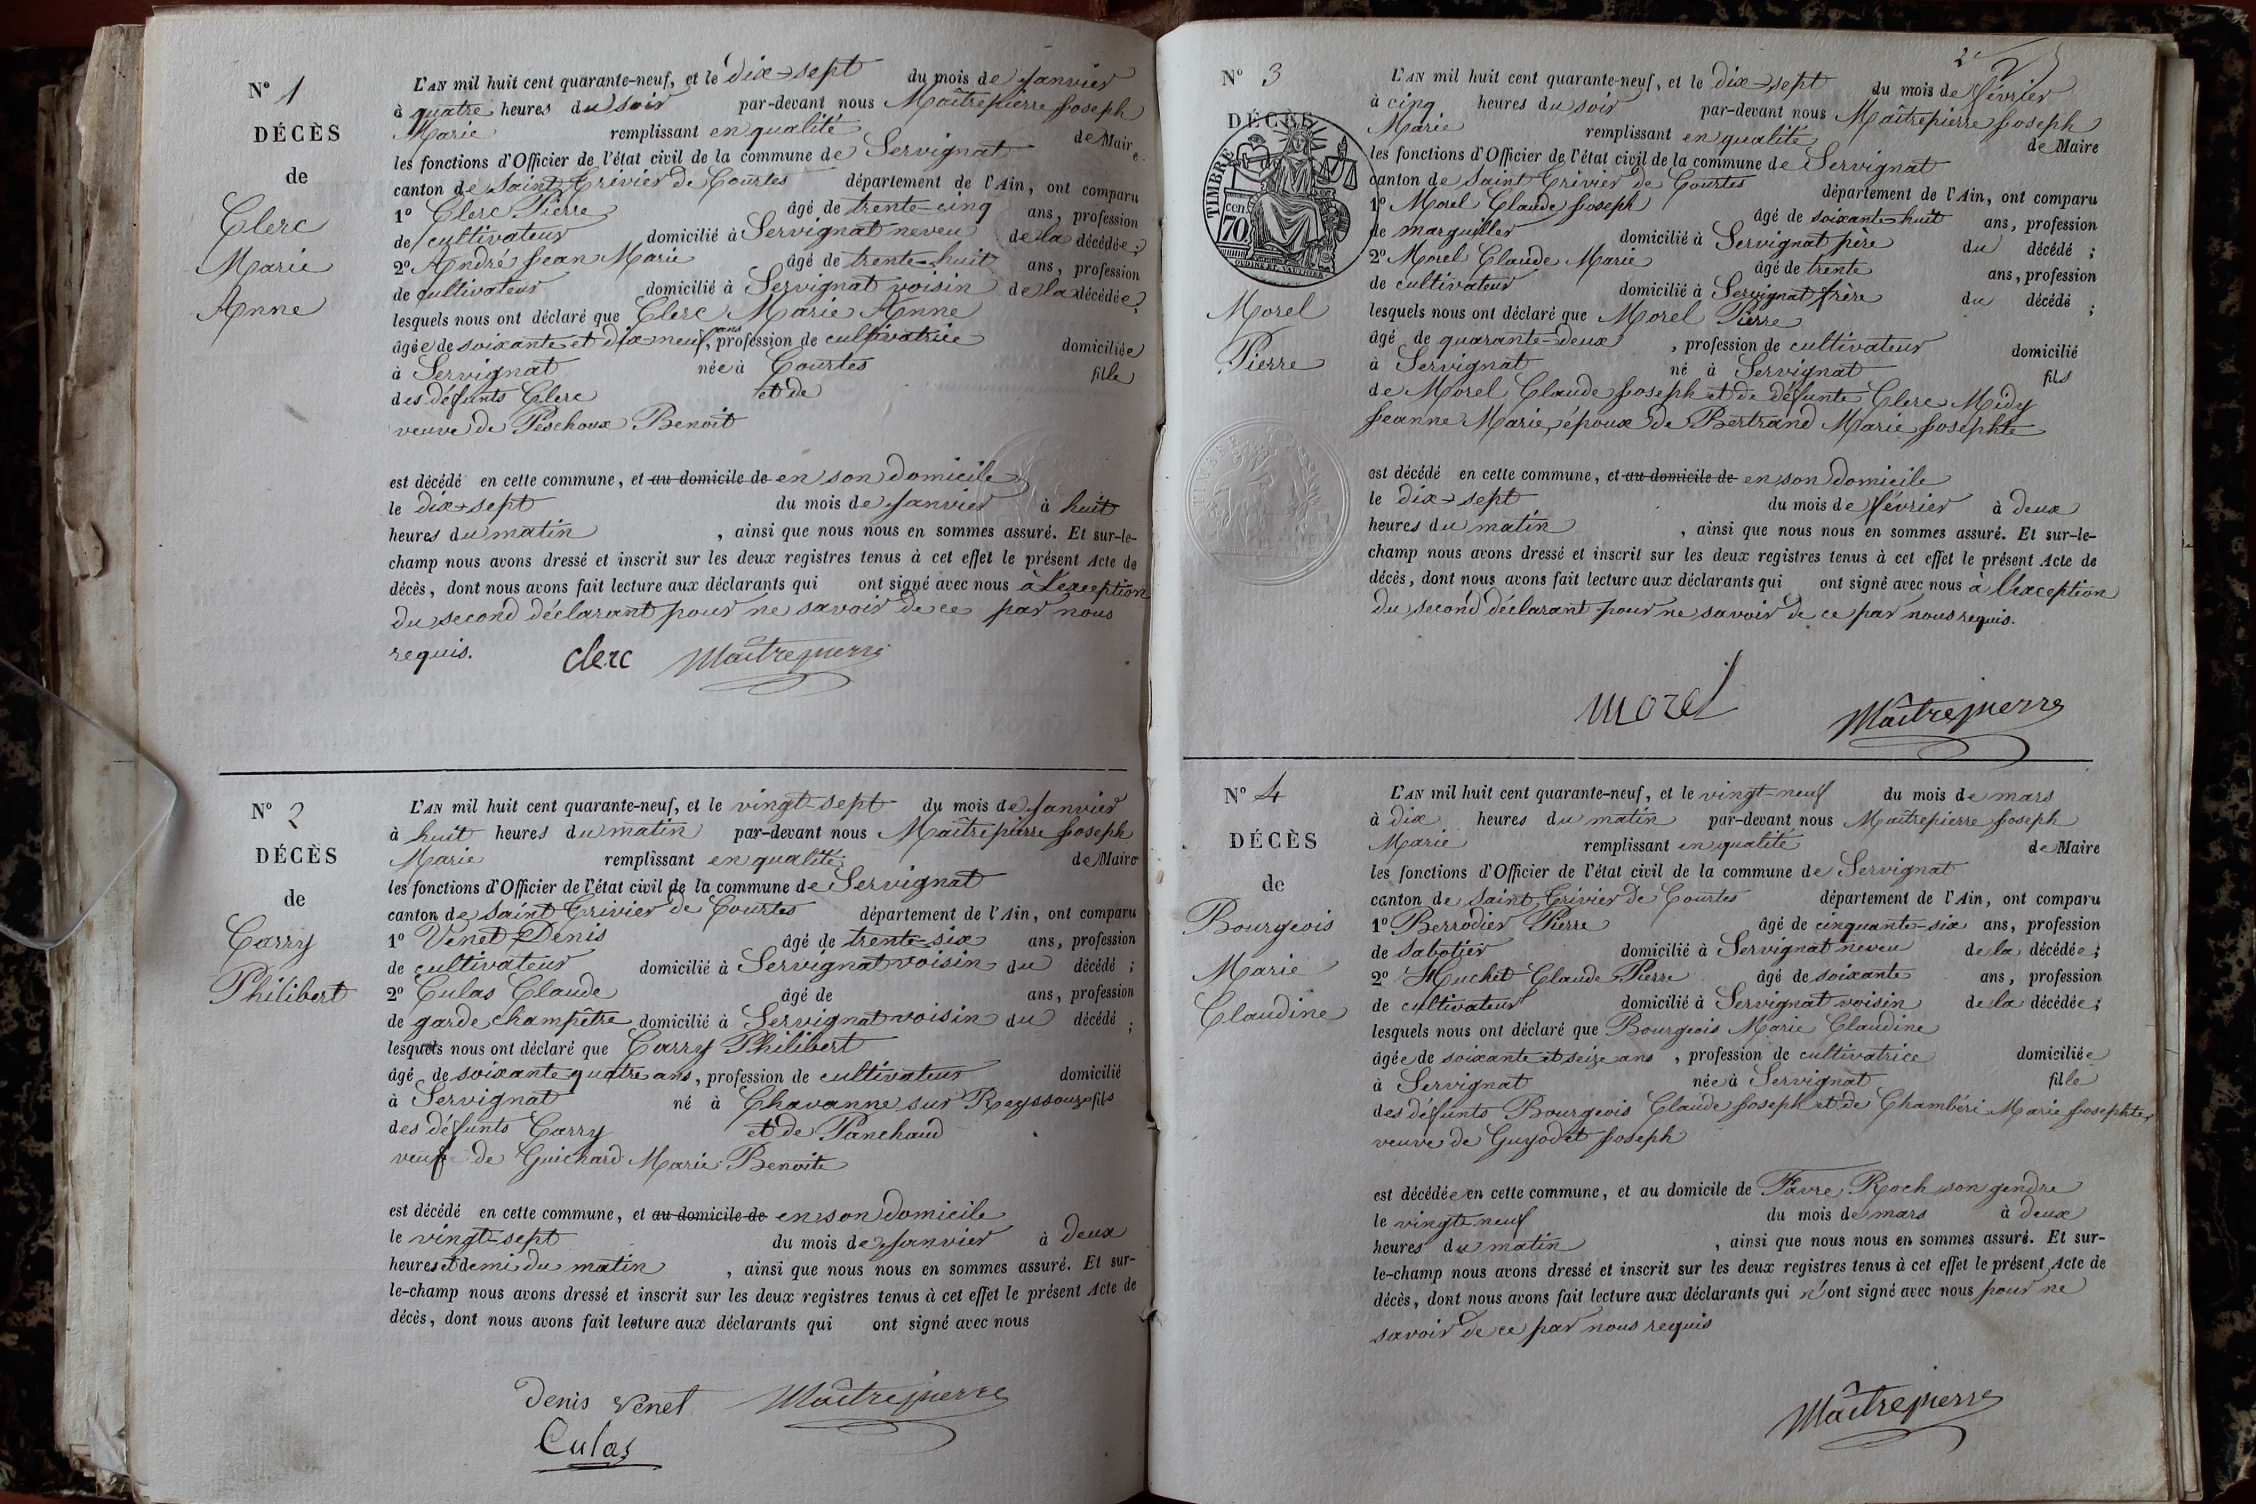 N° 1
DÉCÈS
de
Clerc
Marie
Anne
L'AN mil huit cent quarante-neuf, et le dix-sept du mois de Janvier
à quatre heures du soir par-devant nous Maîtrepierre Joseph
Marie remplissant en qualité de Maire
les fonctions d'Officier de l'état civil de la commune de Servignat
canton de Saint Trivier de Courtes département de l'Ain, ont comparu
1° Clerc Pierre âgé de trente-cinq ans, profession
de cultivateur domicilié à Servignat neveu de la décédée ;
2° André Jean Marie âgé de trente-huit ans, profession
de cultivateur domicilié à Servignat voisin de la décédée ;
lesquels nous ont déclaré que Clerc Marie Anne
âgée de soixante et dix-neuf ans, profession de cultivatrice domiciliée
à Servignat née à Courtes fille
des défunts Clerc et de
veuve de Peschoux Benoit
est décédé en cette commune, et au domicile de en son domicile
le dix-sept du mois de Janvier à huit
heures du matin , ainsi que nous nous en sommes assuré. Et sur-le-
champ nous avons dressé et inscrit sur les deux registres tenus à cet effet le présent Acte de
décès, dont nous avons fait lecture aux déclarants qui ont signé avec nous à l'exception
du second déclarant pour ne savoir de ce par nous
requis.
Clerc Maîtrepierre
N° 2
DÉCÈS
de
Carry
Philibert
L'AN mil huit cent quarante-neuf, et le vingt-sept du mois de Janvier
à huit heures du matin par-devant nous Maîtrepierre Joseph
Marie remplissant en qualité de Maire
les fonctions d'Officier de l'état civil de la commune de Servignat
canton de Saint Trivier de Courtes département de l'Ain, ont comparu
1° Venet Denis âgé de trente-six ans, profession
de cultivateur domicilié à Servignat voisin du décédé ;
2° Culas Claude âgé de ans, profession
de garde champêtre domicilié à Servignat voisin du décédé ;
lesquels nous ont déclaré que Carry Philibert
âgé de soixante quatre ans, profession de cultivateur domicilié
à Servignat né à Chavanne sur Reyssouze fils
des défunts Carry et de Panchaud
veuf de Guichard Marie Benoite
est décédé en cette commune, et au domicile de en son domicile
le vingt-sept du mois de Janvier à deux
heures et demi du matin , ainsi que nous nous en sommes assuré. Et sur-
le-champ nous avons dressé et inscrit sur les deux registres tenus à cet effet le présent Acte de
décès, dont nous avons fait lecture aux déclarants qui ont signé avec nous
Denis Venet Maîtrepierre
Culas
N° 3
DÉCÈS
TIMBRE
cen.
70.
Morel
Pierre
L'AN mil huit cent quarante-neuf, et le dix-sept du mois de février
à cinq heures du soir par-devant nous Maîtrepierre Joseph
Marie remplissant en qualité de Maire
les fonctions d'Officier de l'état civil de la commune de Servignat
canton de Saint Trivier de Courtes département de l'Ain, ont comparu
1° Morel Claude Joseph âgé de soixante-huit ans, profession
de marguiller domicilié à Servignat père du décédé ;
2° Morel Claude Marie âgé de trente ans, profession
de cultivateur domicilié à Servignat frère du décédé ;
lesquels nous ont déclaré que Morel Pierre
âgé de quarante-deux , profession de cultivateur domicilié
à Servignat né à Servignat fils
de Morel Claude Joseph et de défunte Clerc Midy
Jeanne Marie, époux de Bertrand Marie Josephte
est décédé en cette commune, et au domicile de en son domicile
le dix-sept du mois de février à deux
heures du matin , ainsi que nous nous en sommes assuré. Et sur-le-
champ nous avons dressé et inscrit sur les deux registres tenus à cet effet le présent Acte de
décès, dont nous avons fait lecture aux déclarants qui ont signé avec nous à l'exception
du second déclarant pour ne savoir de ce par nous requis.
Morel Maîtrepierre
N° 4
DÉCÈS
de
Bourgeois
Marie
Claudine
L'AN mil huit cent quarante-neuf, et le vingt-neuf du mois de mars
à dix heures du matin par-devant nous Maîtrepierre Joseph
Marie remplissant en qualité de Maire
les fonctions d'Officier de l'état civil de la commune de Servignat
canton de Saint Trivier de Courtes département de l'Ain, ont comparu
1° Berrodier Pierre âgé de cinquante-six ans, profession
de sabotier domicilié à Servignat neveu de la décédée ;
2° Huchet Claude Pierre âgé de soixante ans, profession
de cultivateur domicilié à Servignat voisin de la décédée ;
lesquels nous ont déclaré que Bourgeois Marie Claudine
âgée de soixante et seize ans , profession de cultivatrice domiciliée
à Servignat née à Servignat fille
des défunts Bourgeois Claude Joseph et de Chambéri Marie Josephte,
veuve de Guyodet Joseph
est décédée en cette commune, et au domicile de Favre Roch son gendre
le vingt-neuf du mois de mars à deux
heures du matin , ainsi que nous nous en sommes assuré. Et sur-
le-champ nous avons dressé et inscrit sur les deux registres tenus à cet effet le présent Acte de
décès, dont nous avons fait lecture aux déclarants qui n'ont signé avec nous pour ne
savoir de ce par nous requis
Maîtrepierre